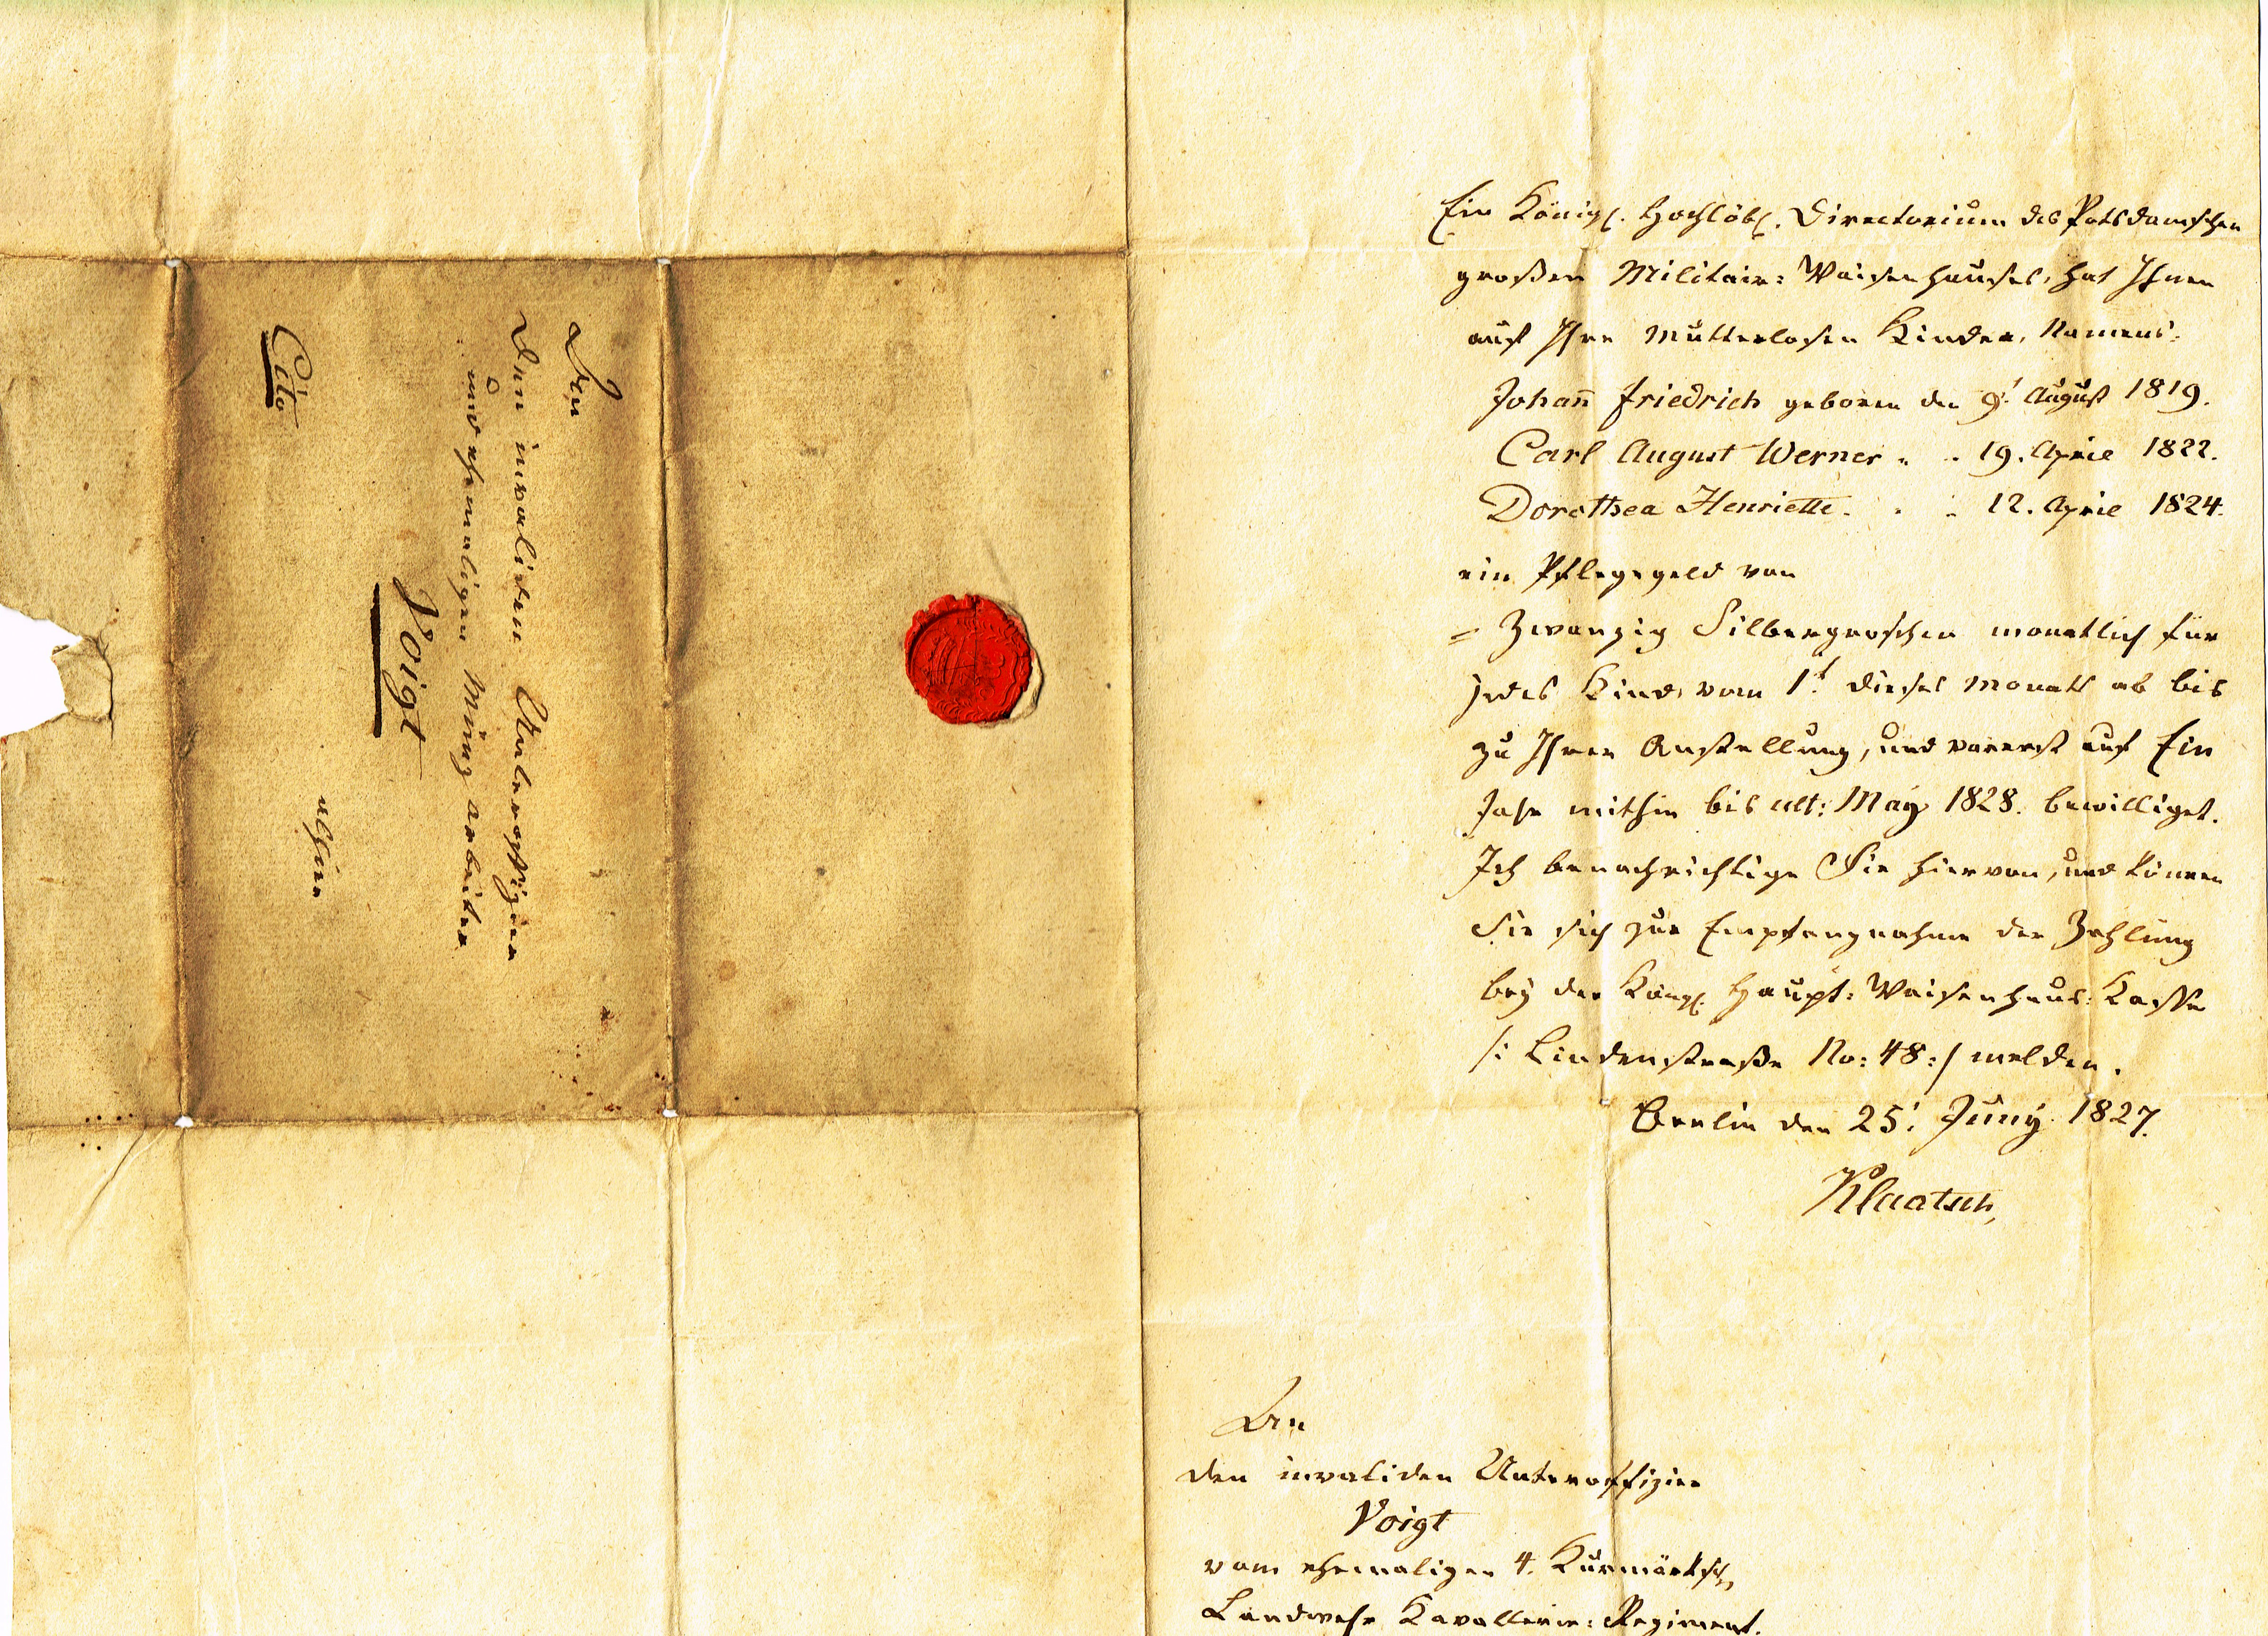 An
den invaliden Unteroffizier
und ehemaligen Münzarbeiter
Voigt
allhier
Cito
Ein Königl. Hochlöbl. Directorium des Potsdamschen
großen Militair: Waisenhauses, hat Ihnen
auf Ihre mutterlosen Kinder, Namens:
Johann Friedrich geboren den 9t. August 1819.
Carl August Werner " " 19. April 1822.
Dorothea Henriette " " 12. April 1824.
ein Pflegegeld von
= Zwanzig Silbergroschen monatlich für
jedes Kind, vom 1t. dieses Monats ab bis
zu Ihrer Anstellung, und vorerst auf Ein
Jahr mithin bis ult: May 1828. bewilliget.
Ich benachrichtige Sie hiervon, und können
Sie sich zur Empfangnahme der Zahlung
bey der Königl. Haupt: Waisenhaus: Kasse
/: Lindenstraße No: 48 :/ melden.
Berlin den 25t. Juny 1827.
Klaatsch,
An
den invaliden Unteroffizier
Voigt
vom ehemaligen 4. Kurmärksch.
Landwehr Kavallerie: Regiment.